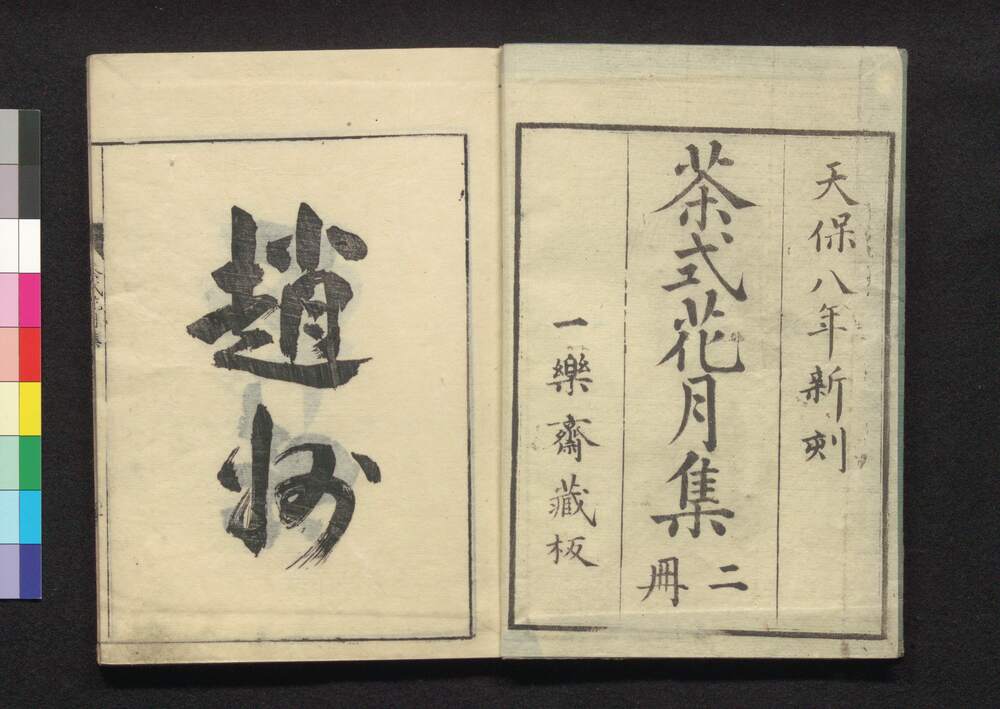 天保八年新刻
茶式花月集
二冊
一樂齋藏板
趙州